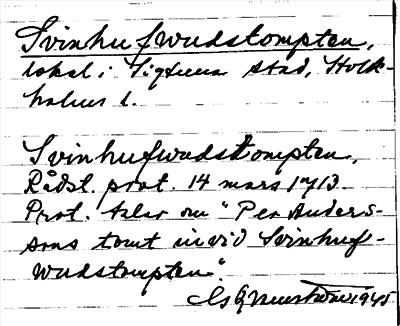 Svinhufwudstompten,
lokal i Sigtuna stad, Stock-
holms l.
Svinhufwudstompten,
Rådst. prot. 14 mars 1713.
Prot. talar om "Per Anders-
sons tomt invid Svinhuf-
wudstompten".
1945